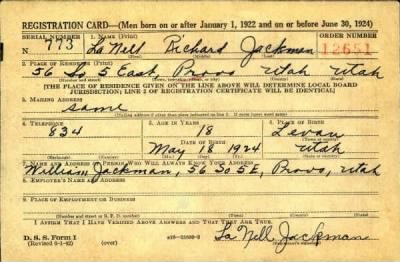 REGISTRATION CARD—(Men born on or after January 1, 1922 and on or before June 30, 1924)
SERIAL NUMBER 1. NAME (Print) ORDER NUMBER
N 773 La Nell Richard Jackman 12651
(First) (Middle) (Last)
2. PLACE OF RESIDENCE (Print)
56 So 5 East Provo Utah Utah
(Number and street) (Town, township, village, or city) (County) (State)
[THE PLACE OF RESIDENCE GIVEN ON THE LINE ABOVE WILL DETERMINE LOCAL BOARD
JURISDICTION; LINE 2 OF REGISTRATION CERTIFICATE WILL BE IDENTICAL]
3. MAILING ADDRESS
Same
[Mailing address if other than place indicated on line 2. If same insert word same]
4. TELEPHONE 5. AGE IN YEARS 6. PLACE OF BIRTH
834 18 Levan
DATE OF BIRTH (Town or county)
May 18 1924 Utah
(Exchange) (Number) (Mo.) (Day) (Yr.) (State or country)
7. NAME AND ADDRESS OF PERSON WHO WILL ALWAYS KNOW YOUR ADDRESS
William Jackman, 56 So 5 E, Provo, Utah
8. EMPLOYER'S NAME AND ADDRESS
9. PLACE OF EMPLOYMENT OR BUSINESS
(Number and street or R. F. D. number) (Town) (County) (State)
I AFFIRM THAT I HAVE VERIFIED ABOVE ANSWERS AND THAT THEY ARE TRUE.
D. S. S. Form 1
(Revised 6-1-42) (over) La Nell Jackman
(Registrant's signature)